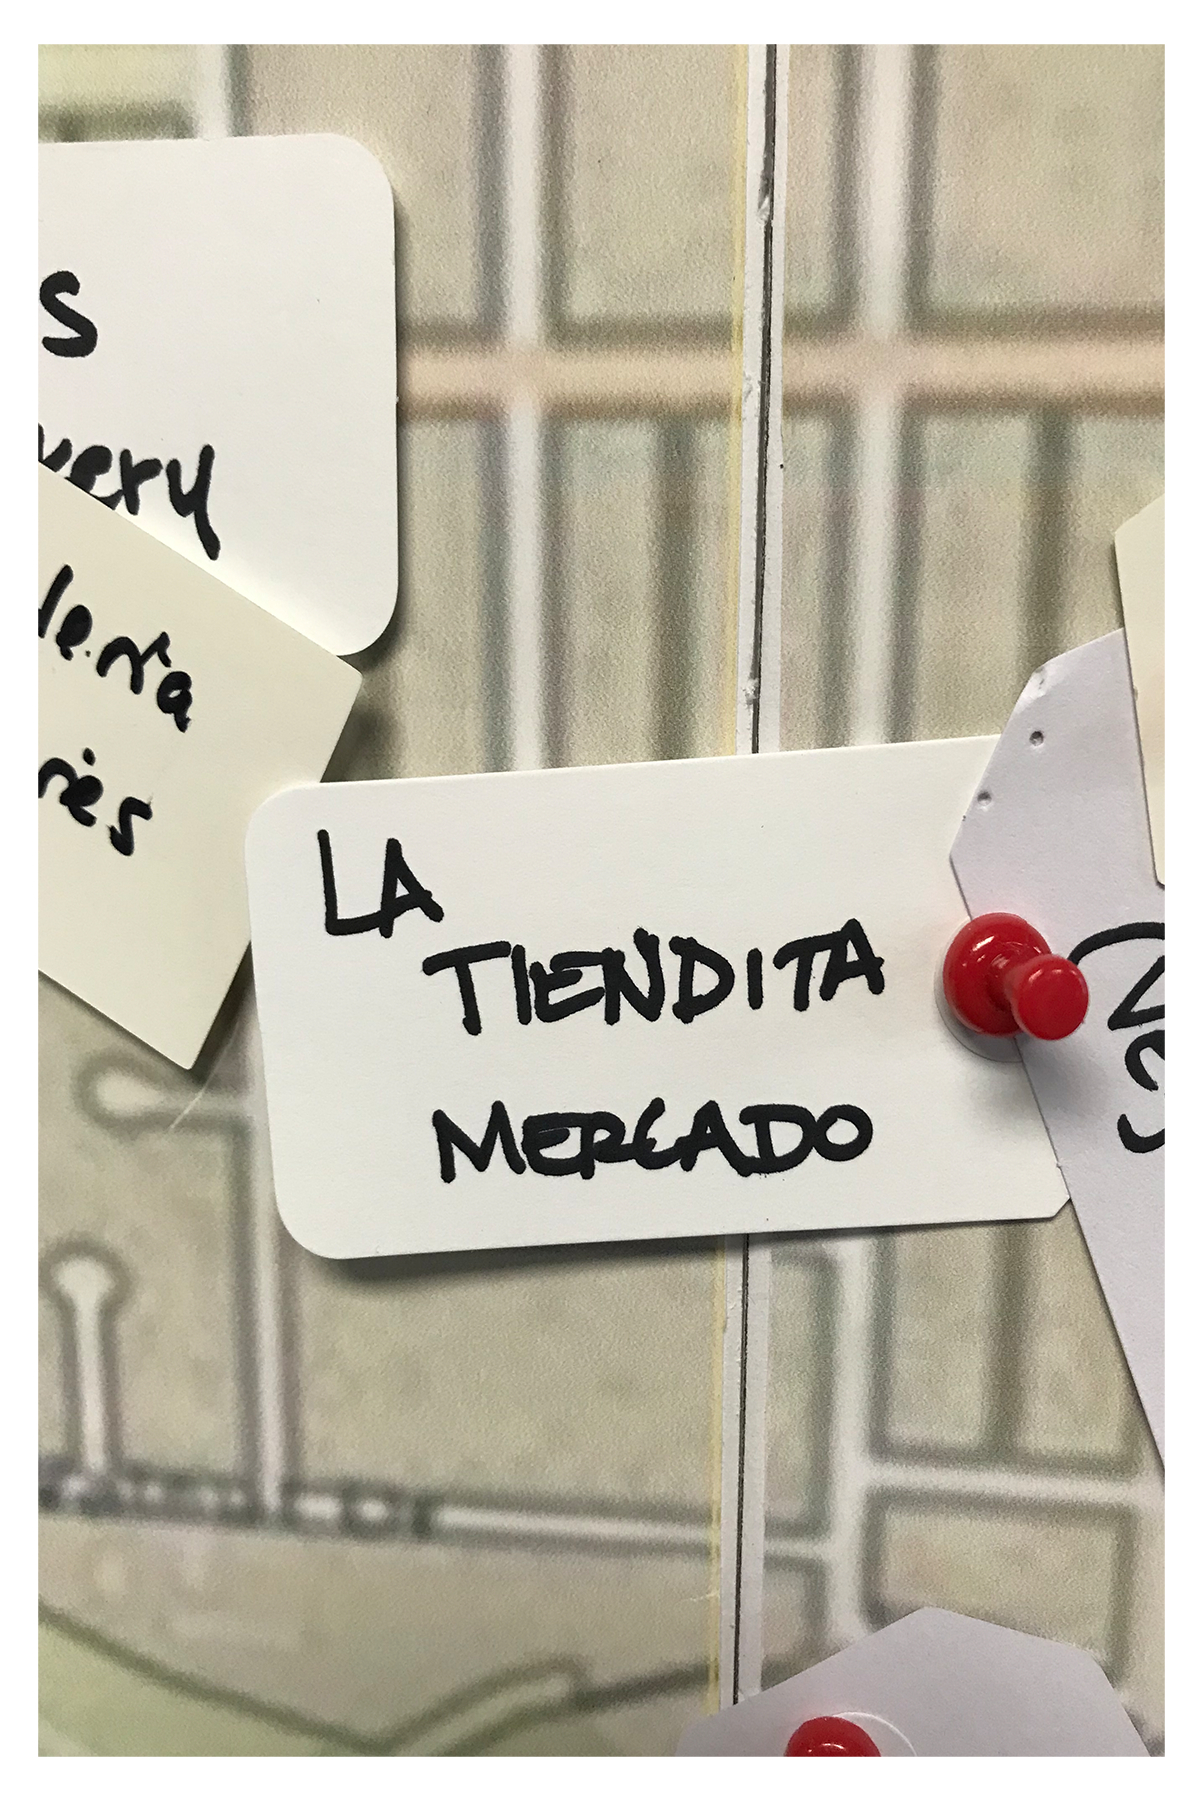 s
very
lería
rés
LA
TIENDITA
MERCADO